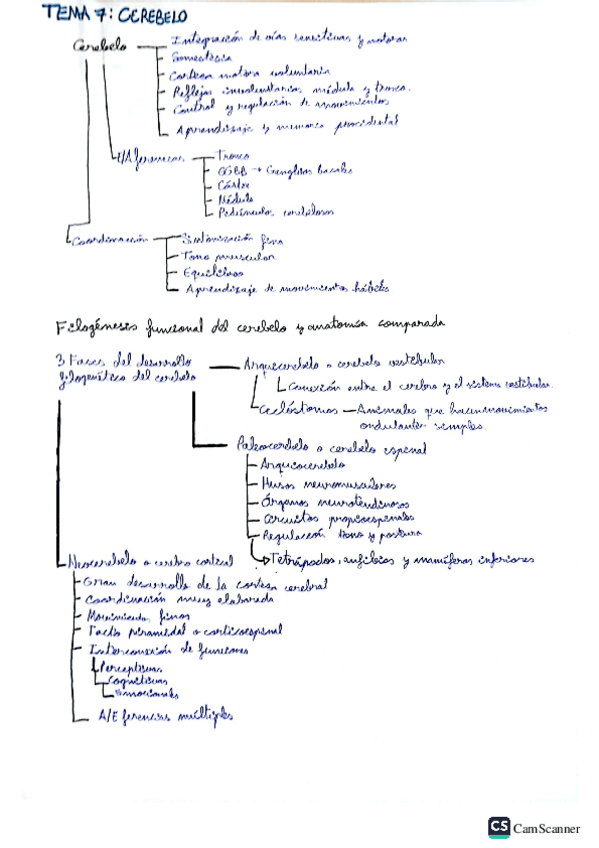 TEMA 7: CEREBELO
Cerebelo
Integración de vías sensitivas y motoras
Somestesia
Corteza motora voluntaria
Reflejos involuntarios médula y tronco.
Control y regulación de movimientos
Aprendizaje y memoria procidental
Aferencias
Tronco
GGBB → Ganglios basales
Córtex
Médula
Pedúnculos cerebelosos
Coordinación
Sintonización fina
Tono muscular
Equilibrio
Aprendizaje de movimientos hábiles
Filogénesis funcional del cerebelo y anatomía comparada
3 Fases del desarrollo filogenético del cerebelo
Arquicerebelo o cerebelo vestibular
Conexión entre el cerebro y el sistema vestibular.
Ciclóstomos — Animales que hacen movimientos
ondulantes simples.
Paleocerebelo o cerebelo espinal
Arquicerebelo
Husos neuromusculares
Órganos neurotendinosos
Circuitos propioespinales
Regulación tono y postura
Tetrápodos, anfibios y mamíferos inferiores
Neocerebelo o cerebro cortical
Gran desarrollo de la corteza cerebral
Coordinación muy elaborada
Movimientos finos
Tracto piramidal o corticoespinal
Interconexión de funciones
Perceptivas
Cognitivas
Emocionales
A/E ferencias múltiples
CS CamScanner